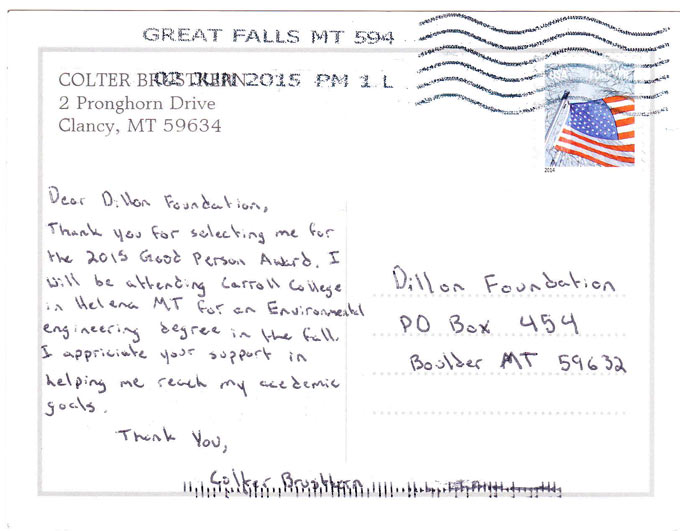 GREAT FALLS MT 594
COLTER
2015 PM 1 L
2 Pronghorn Drive
Clancy, MT 59634
2014
Dear Dillon Foundation,
Thank you for selecting me for
the 2015 Good Person Award. I
will be attending Carroll College
in Helena MT for an Environmental
engineering degree in the fall.
I appriciate your support in
helping me reach my acedemic
goals.
Thank You,
Colter
Dillon Foundation
PO Box 454
Boulder MT 59632